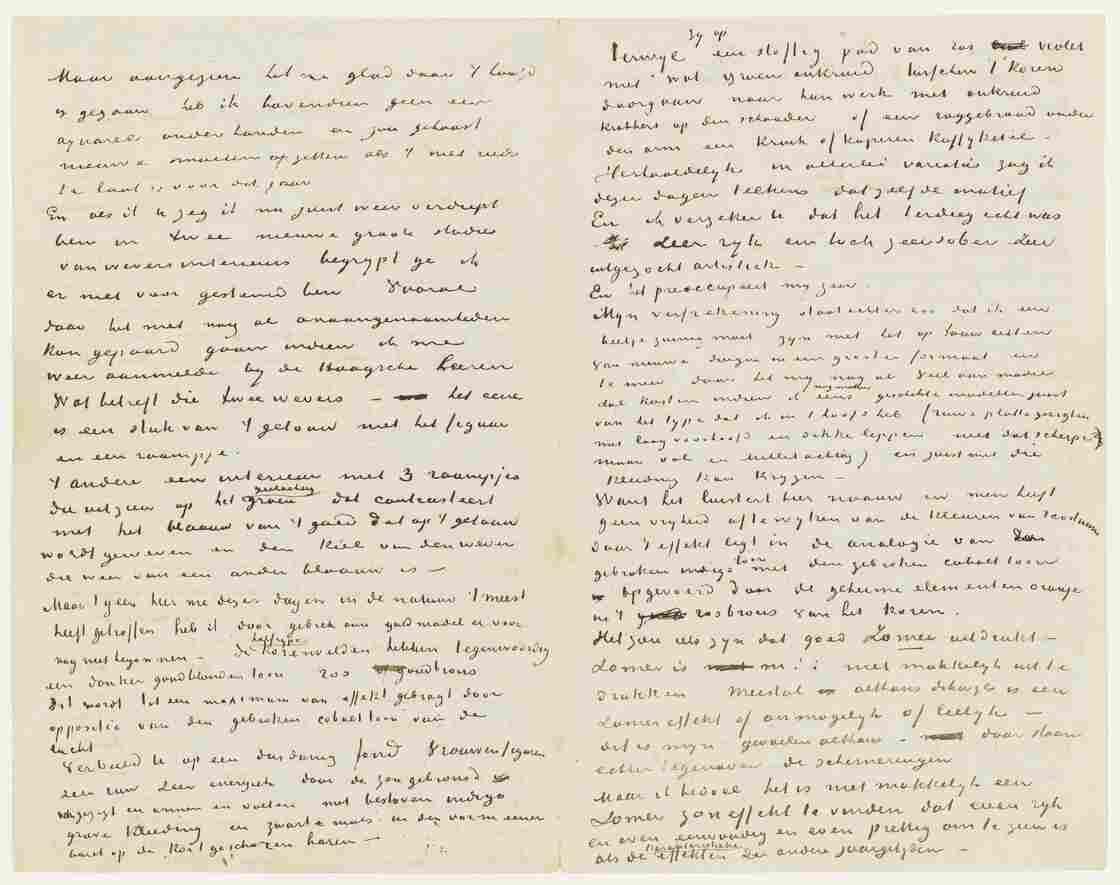 Maar aangezien het me glad door 't hoofd
is gegaan heb ik bovendien geen een
aquarel onder handen en zou gehaast
nieuwe moeten opzetten als 't niet reeds
te laat is voor dit jaar
En als ik U zeg ik nu juist weer verdiept
ben in twee nieuwe groote studies
van weversinterieurs begrypt ge ik
er niet voor gestemd ben Vooral
daar het met nog al onaangenaamheden
kan gepaard gaan indien ik me
weer aanmeldde by de Haagsche heeren
Wat betreft die twee wevers – het eene
is een stuk van 't getouw met het figuur
en een raampje.
't andere een interieur met 3 raampjes
die uitzien op het geelachtig groen dat contrasteert
met het blaauw van 't goed dat op 't getouw
wordt geweven en den kiel van den wever
die weer van een ander blaauw is –
Maar 't geen hier me dezer dagen in de natuur 't meest
heeft getroffen heb ik door gebrek aan goed model er voor
nog niet begonnen – De halfrype korenvelden hebben tegenwoordig
een donker goudblonden toon ros of goudbrons
Dit wordt tot een maximum van effekt gebragt door
oppositie van den gebroken cobalt toon van de
lucht
Verbeeld U op een dusdanig fond Vrouwenfiguren
zeer ruw zeer energiek door de zon gebronsd
gezigt en armen en voeten met bestoven indigo
grove kleeding en zwarte muts in den vorm eener
baret op de kort geschoren haren –
Terwyl zy op een stoffig pad van ros violet
met wat groen onkruid tusschen 't koren
doorgaan naar hun werk met onkruid
krabbers op den schouder of een roggebrood onder
den arm een kruik of koperen koffyketel –
Herhaaldelyk in allerlei variaties zag ik
dezer dagen telkens datzelfde motief
En ik verzeker U dat het terdieg echt was
Zeer ryk en toch zeer sober zeer
uitgezocht artistiek –
En het preoccupeert my zeer.
Myn verfrekening staat echter zoo dat ik een
beetje zuinig moet zyn met het op touw zetten
van nieuwe dingen in een grooter formaat en
te meer daar het my nog al veel aan modèle
zal kosten indien ik maar eens geschikte modellen juist
van het type dat ik in 't hoofd heb (ruwe platte gezigten
met laag voorhoofd en dikke lippen niet dat scherpe
maar vol en milletachtig) en juist met die
kleeding kan krygen –
Want het luistert hier naauw en men heeft
geen vryheid af te wyken van de kleuren van 't costuum
daar 't effekt ligt in de analogie van den
gebroken indigo toon met den gebroken cobalt toon
opgevoerd door de geheime elementen oranje
in 't rosbrons van het koren.
Het zou iets zyn dat goed Zomer uitdrukt –
Zomer is m.i. niet makkelyk uit te
drukken Meestal althans dikwyls is een
Zomereffekt of onmogelyk of leelyk –
dit is myn gevoelen althans – daar staan
echter tegenover de schemeringen
Maar ik bedoel het is niet makkelyk een
Zomer zon effekt te vinden dat even ryk
en even eenvoudig en even prettig om te zien is
als de karakteristieke effekten der andere jaargetyden –